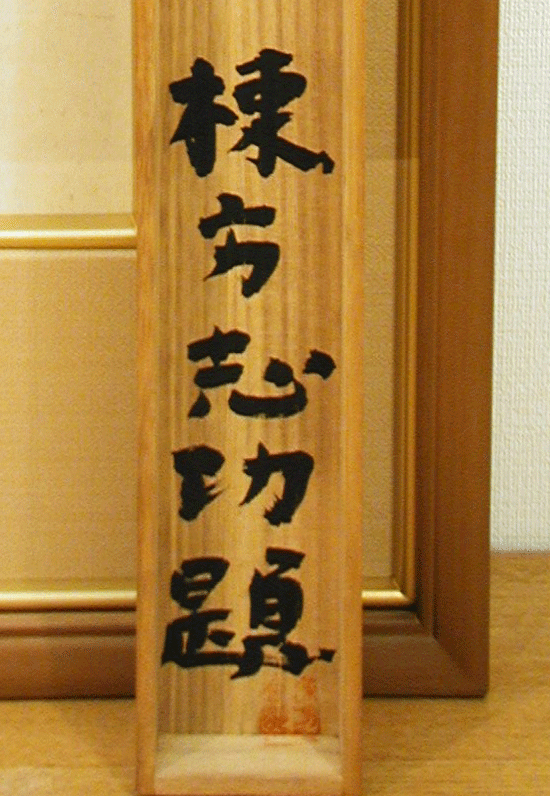 棟方志功題